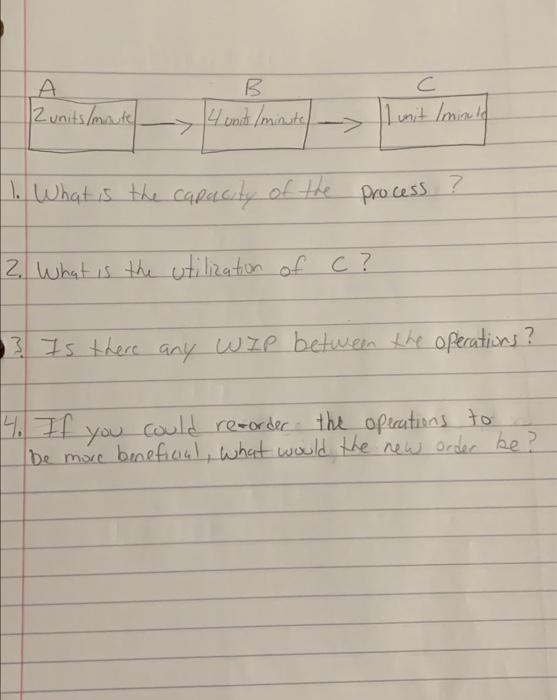 A B C
2 units/minute 4 units/minute 1 unit/minute
1. What is the capacity of the process?
2. What is the utilization of C?
3. Is there any WIP between the operations?
4. If you could re-order the operations to
be more beneficial, what would the new order be?